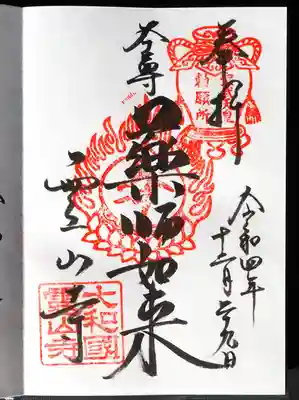 奉拝
勅願所
令和四年
十二月二九日
本尊
薬師如来
霊山寺
大和國
靈山寺